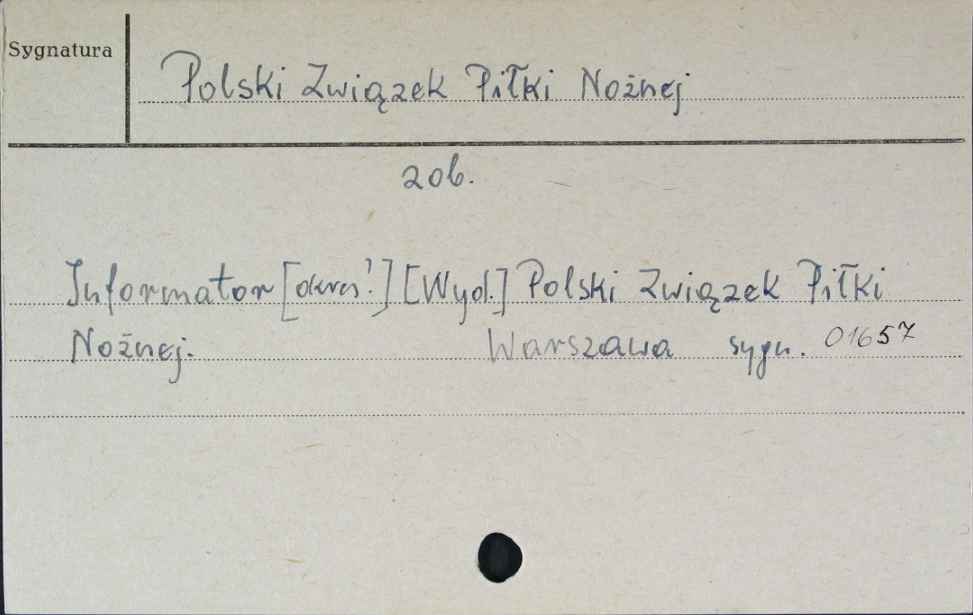 Sygnatura
Polski Związek Piłki Nożnej
zob.
Informator [okres!] [Wyd.] Polski Związek Piłki
Nożnej. Warszawa sygn. 01657